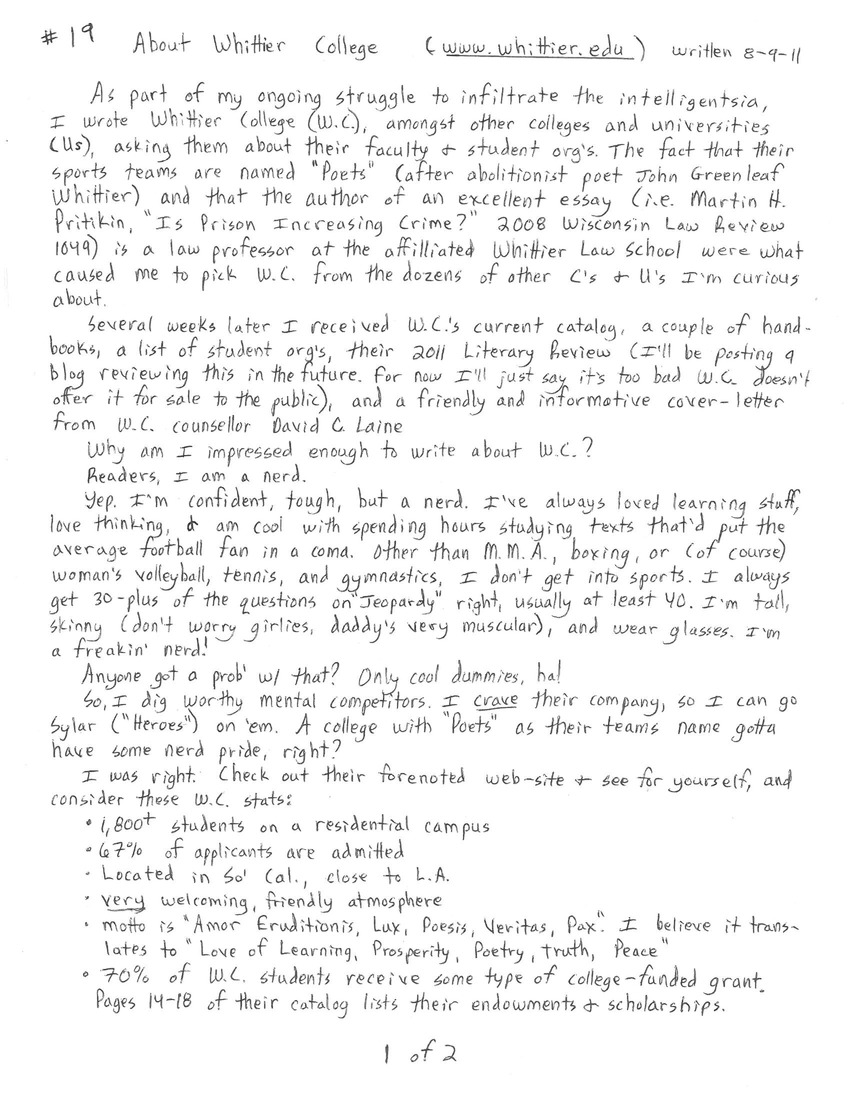 #19 About Whittier College (www.whittier.edu) written 8-9-11
As part of my ongoing struggle to infiltrate the intelligentsia,
I wrote Whittier College (W.C.), amongst other colleges and universities
(Us), asking them about their faculty & student org's. The fact that their
sports teams are named "Poets" (after abolitionist poet John Greenleaf
Whittier) and that the author of an excellent essay (i.e. Martin H.
Pritikin, "Is Prison Increasing Crime?" 2008 Wisconsin Law Review
1049) is a law professor at the affilliated Whittier Law School were what
caused me to pick W.C. from the dozens of other C's & U's I'm curious
about.
Several weeks later I received W.C.'s current catalog, a couple of hand-
books, a list of student org's, their 2011 Literary Review (I'll be posting a
blog reviewing this in the future. For now I'll just say it's too bad W.C. doesn't
offer it for sale to the public), and a friendly and informative cover-letter
from W.C. counsellor David C. Laine
Why am I impressed enough to write about W.C.?
Readers, I am a nerd.
Yep. I'm confident, tough, but a nerd. I've always loved learning stuff,
love thinking, & am cool with spending hours studying texts that'd put the
average football fan in a coma. Other than M.M.A., boxing, or (of course)
woman's volleyball, tennis, and gymnastics, I don't get into sports. I always
get 30-plus of the questions on "Jeopardy" right, usually at least 40. I'm tall,
skinny (don't worry girlies, daddy's very muscular), and wear glasses. I'm
a freakin' nerd!
Anyone got a prob' w/ that? Only cool dummies, ha!
So, I dig worthy mental competitors. I crave their company, so I can go
Sylar ("Heroes") on 'em. A college with "Poets" as their teams name gotta
have some nerd pride, right?
I was right. Check out their forenoted web-site & see for yourself, and
consider these W.C. stats:
• 1,800+ students on a residential campus
• 67% of applicants are admitted
• Located in So' Cal., close to L.A.
• very welcoming, friendly atmosphere
• motto is "Amor Eruditionis, Lux, Poesis, Veritas, Pax". I believe it trans-
lates to "Love of Learning, Prosperity, Poetry, Truth, Peace"
• 70% of W.C. students receive some type of college-funded grant.
Pages 14-18 of their catalog lists their endowments & scholarships.
1 of 2